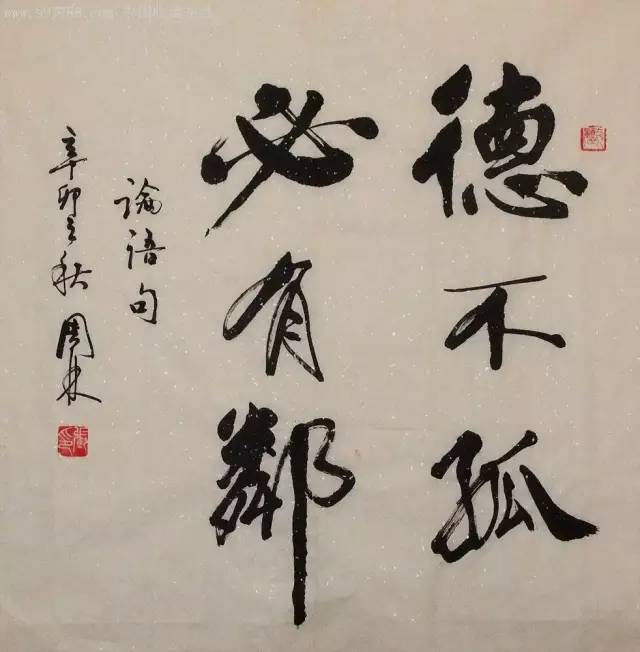 德不孤
必有鄰
論語句
辛卯之秋周林